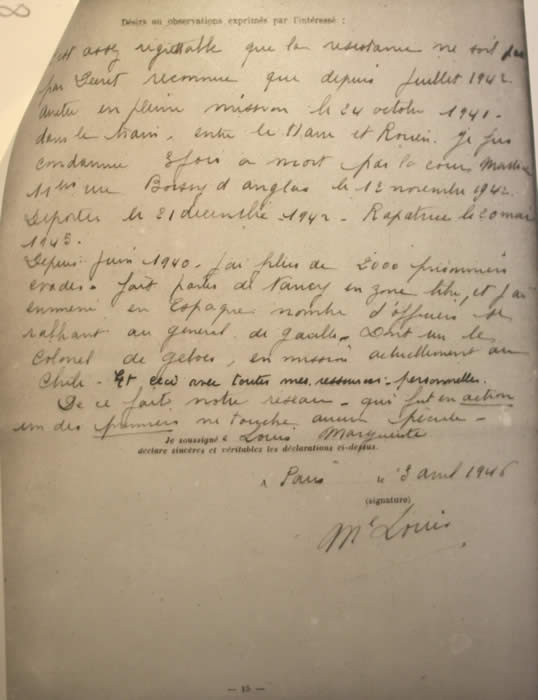 Désirs ou observations exprimés par l'intéressé :
est assez regrettable que la resistance ne soit pas
par Decret reconnue que depuis Juillet 1942.
arretée en pleine mission le 24 octobre 1941.
dans le train, entre le Havre et Rouen. Je fus
condamnée 2 fois a mort par la cour Martiale
11bis rue Boissy d'anglas le 12 novembre 1942.
Deportée le 21 decembre 1942 - Rapatriée le 20 mai
1945.
Depuis Juin 1940. J'ai plus de 2000 prisonniers
evades. fait partis de Nancy en zone libre, et j'ai
emmené en Espagne nombre d'officiers se
ralliant au general de gaulle. Dont un le
Colonel de , en mission actuellement au
Chili - Et ceci avec toutes mes ressources personnelles.
De ce fait notre reseau - qui fut en action
un des premiers ne touche aucun
Je soussigné e Louis Marguerite
déclare sincères et véritables les déclarations ci-dessus.
A Paris le 3 avril 1946
(signature)
Me Louis
— 15 —